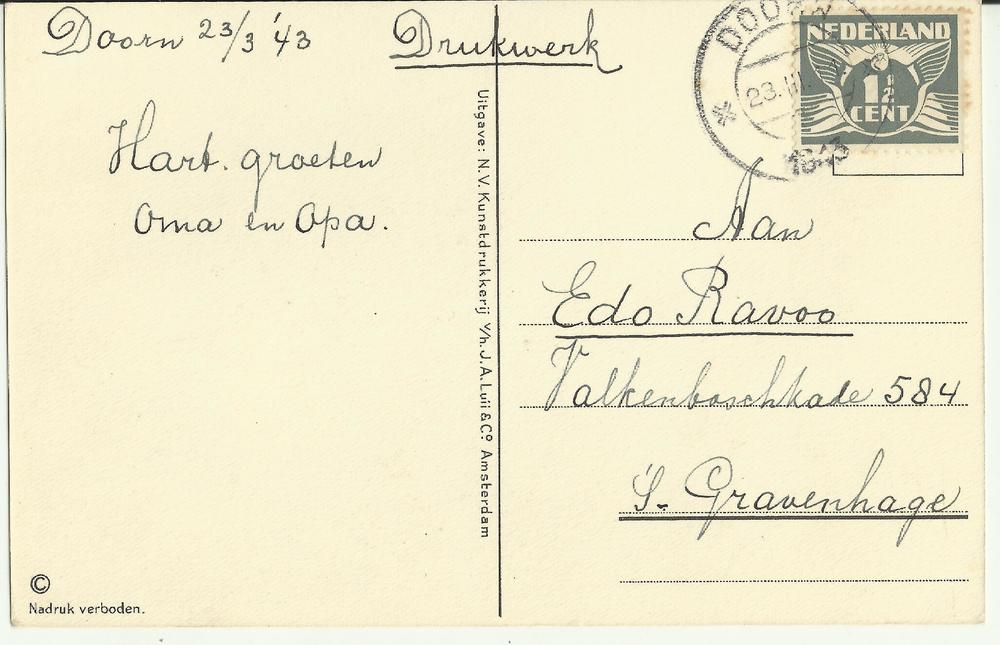 Doorn 23/3 '43
Drukwerk
Hart. groeten
Oma en Opa.
Uitgave: N.V. Kunstdrukkerij v/h. J.A. Luii & Co. Amsterdam
DOORN
23.III.
1943
NEDERLAND
1 1/2
CENT
Aan
Edo Ravoo
Valkenboschkade 584
'S-Gravenhage
©
Nadruk verboden.